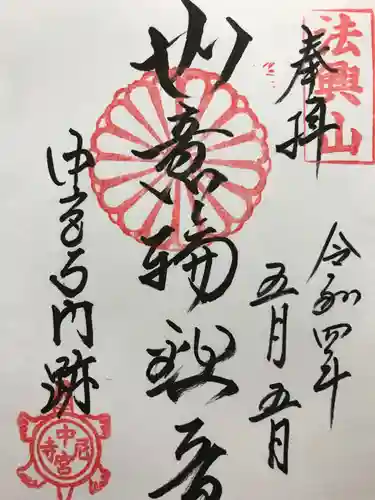 法興山
奉拝
令和四年
五月五日
如意輪観音
中宮寺門跡
中宮尼寺